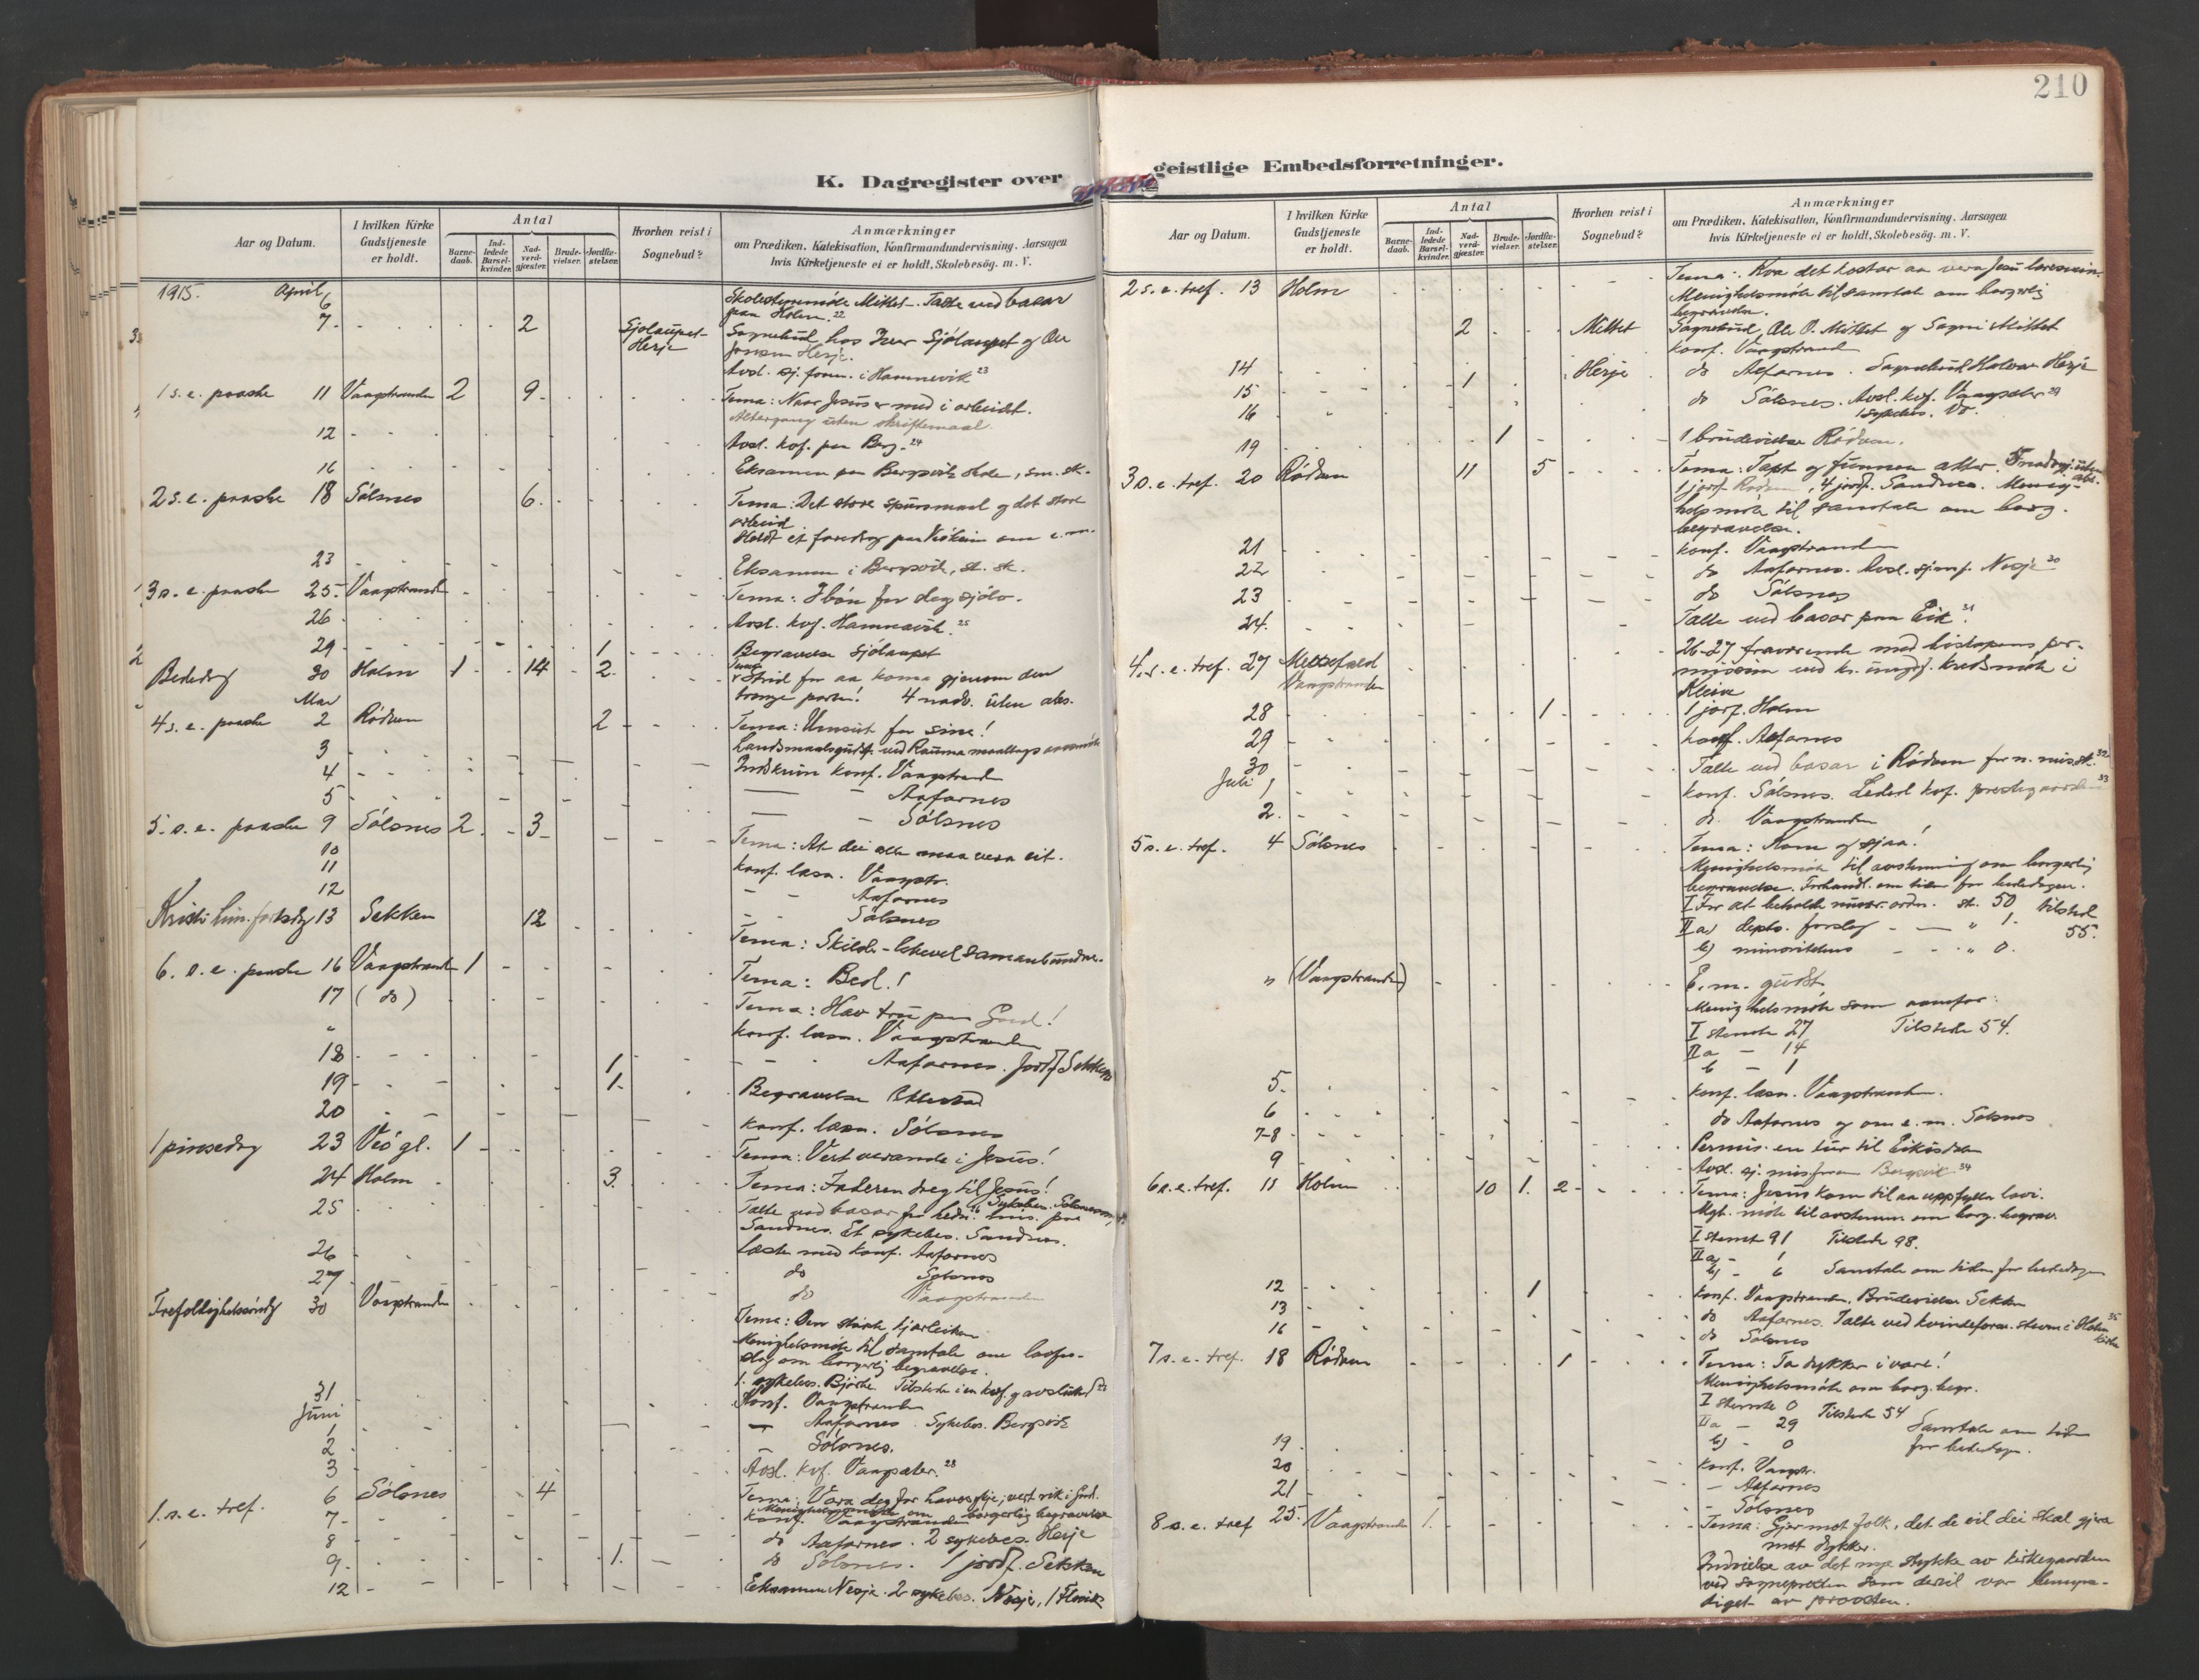 210
K. Dagregister over geistlige Embedsforretninger.
Aar og Datum. I hvilken Kirke Gudstjeneste er holdt. Antal Barnedaab. Indledede Barselkvinder. Nadverdgjæster. Brudevielser. Jordfæstelser. Hvorhen reist i Sognebud? Anmærkninger om Prædiken, Katekisation, Konfirmandundervisning. Aarsagen hvis Kirketjeneste ei er holdt, Skolebesög. m. V.
1915. April
6 Skolestyremöte Mittet. Talte ved basar
paa Holm. 22
7 2 Sjölaupet- Herje Sognebud hos Iver Sjölaupet og Ole
Herje.
Avsl. sj. foren. i Hamnevik 23
1 s. e. paaske 11 Vaagstranden 2 9 Tema: Naar Jesus er med i arbeidet.
Altergang uten skriftemaal.
12 Avsl. kvf. paa Berg. 24
16 Eksamen paa Bergsvik skole, sm. sk.
2 s. e. paaske 18 Sölsnes 6 Tema: Det store spursmaal og det store
arbeid
Holdt et foredrag paa om e.m.
23 Eksamen i Bergsvik, st. sk.
3 s. e. paaske 25 Vaagstranden Tema: I bön for deg sjölv.
26 Avsl. kvf. Hamnevik. 25
29 1 Begravelse Sjölaupet
Bededag 30 Holm 1 14 2 Tema: Strid for aa koma gjenom den
tronge porten! 4 nadv. uten abs.
Mai
4 s. e. paaske 2 Rödven 2 Tema: Umsut for sine!
Landsmaalsgudst. ved Rauma maallags aarsmöte
3 Indskriv. konf. Vaagstranden
4 Aafarnes
5 Sölsnes
5. s. e. paaske 9 Sölsnes 2 3 Tema: At dei alle maa vera eit.
10 Konf. læsn. Vaagstr.
11 Aafarnes
12 Sölsnes
Kristi him. fartsdag 13 Sekken 12 Tema: Skilde - likevel samanbundne.
6. s. e. paaske 16 Vaagstranden 1 Tema: Bed!
17 (do) Tema: Hav tru paa Gud!
" Konf. læsn. Vaagstranden
18 1 Aafarnes. Jordf. Sekken
19 1 Begravelse
20 Konf. læsn. Sölsnes
1 pinsedag 23 Veö gl. 1 Tema: Vert verande i Jesus!
24 Holm 3 Tema: Faderen dreg til Jesus!
25 Talte ved basar for hedn. mis. paa
Sandnes. Et sykebes. Sandnes.
26 Læste med konf. Aafarnes
27 do Sölsnes
do Vaagstranden
Trefoldighetssöndag 30 Vaagstranden Tema: Den sterke kjærleiken
Menighetsmöte til samtale om lovfor-
slag om borgerlig begravelse.
1. sykebes. Björke. Tilstede i en kvf. og avslutt.
31 Konf. Vaagstranden
Juni
1 Aafarnes. Sykebes. Bergsvik
2 Sölsnes.
3 Avsl. kvf. Vaagsæter. 28
1. s. e. tref. 6 Sölsnes 4 Tema: Vara deg for havesykje; vert rik i Gud.
Menighetsmöte om borgerlig begravelse
7 Konf. Vaagstranden
8 do Aafarnes. 2 sykebes. Herje
9 1 do Sölsnes. 1 jordf. Sekken
12 Eksamen Nesje. 2 sykebes. Nesje, 1 Flovik
2 s. e. tref. 13 Holm Tema: Kva det kostar aa vera Jesu læresvein.
Menighetsmöte til samtale om borgerlig
begravelse.
2 Mittet Sognebud Ole O. Mittet og Mittet
Konf. Vaagstrand
14 1 Herje do Aafarnes. Sognebud Halvor Herje
15 do Sölsnes. Avsl. kvf. Vaagsæter 29
16 1 sykebes.
19 1 1 brudevielse Rödven.
3 s. e. tref. 20 Rödven 11 5 Tema: Tapt og funnen atter. 5 nadvgj. uten abs.
1 jordf. Rödven, 4 jordf. Sandnes. Menig-
hetsmöte til samtale om borg.
begravelse.
21 Konf. Vaagstranden
22 do Aafarnes. Avsl. sjømf. Nesje 30
23 do Sölsnes
24. Talte ved basar paa Eik 31
4. s. e. tref. 27 Messefald Vaagstranden 26-27 fraværende med biskopens per-
mission ved kr. ungdf. kredsmöte i
Kleive
28 1 1 jordf. Holm
29 Konf. Aafarnes
30 Talte ved basar i Rödven for n. misst. 32
Juli 1 Konf. Sölsnes. Ledet kvf. prestegaarden 33
2. do. Vaagstranden
5 s. e. tref. 4 Sölsnes Tema: Kom og sjaa!
Menighetsmöte til avstemning om borgerlig
begravelse. Forhandl. om tiden for bededagen.
I For at beholde nuvær. ordn. st. 50 tilsted
II a) depts. forslag " 1. 55.
b) minoritetens " 0.
" (Vaagstranden) E. m. gudst.
Menighetsmöte som ovenfor:
I stemte 27 Tilstede 54.
II a - 14
b - 1
5. Konf. læsn. Vaagstranden.
6 do Aafarnes og om e. m. Sölsnes
7-8 Permis. en tur til Eikisdalen
9 Avsl. sj. mis. foren Bergsvik 34
6 s. e. tref. 11 Holm 10 1. 2 Tema: Jesus kom til aa uppfylla lovi.
Mgh. möte til avstemn. om borg. begrav.
I stemt 91 Tilstede 98.
II a) - 1
b) - 6 Samtale om tiden for bededagen
12 1 Konf. Vaagstranden. Brudevielse Sekken
13 do Aafarnes. Talte ved kvindeforen. stevne i Holm kirke 35
16 do Sölsnes
7 s. e. tref. 18 Rödven 1 Tema: Ta dykker i vare!
Menighetsmöte om borg. begr.
I stemte 0 Tilstede 54
II a - 29 Samtale om tiden
b) - 0 for bededagen.
19 Konf. Vaagstr.
20 - Aafarnes
21 - Sölsnes
8 s. e. tref 25 Vaagstranden 1. Tema: Gjer mot folk, det de vil dei skal gjera
mot dykker.
Indvielse av det nye stykke av kirkegaarden
ved sognepresten som dertil var bemyn-
diget av prosten.